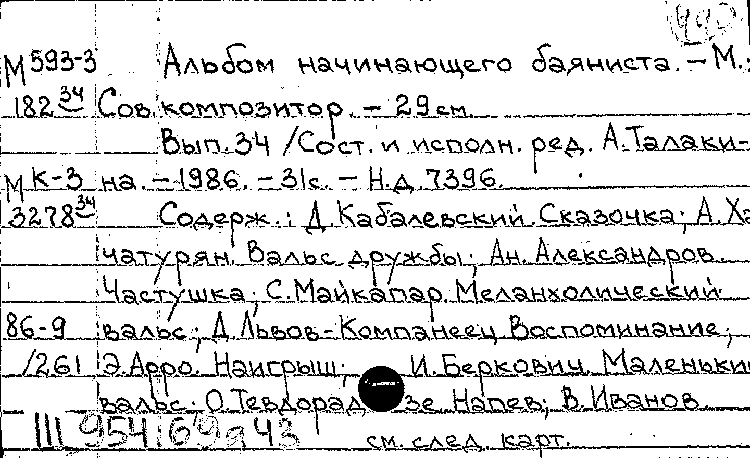 990
М 593-3 Альбом начинающего баяниста. – М.:
182 34 Сов. композитор. – 29 см.
Вып. 34 / Сост. и исполн. ред. А. Талаки-
М К-3 на. – 1986. – 31 с. – Н.д. 7396.
3278 34 Содерж.: Д. Кабалевский. Сказочка; А. Ха
чатурян. Вальс дружбы; Ан. Александров.
Частушка; С. Майкапар. Меланхолический
86-9 вальс; Д. Львов-Компанеец. Воспоминание;
/261 Э. Арро. Наигрыш; И. Беркович. Маленьки
вальс; О. Тевдорад зе. Напев; В. Иванов.
III 954169 д 43 см. след. карт.